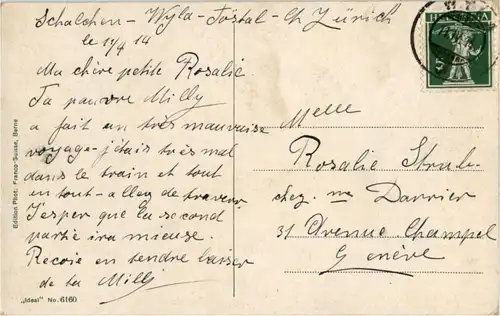 Schalchen - Wyla - Töstal - Ct Zürich
le 14/4 14
Ma chère petite Rosalie
Ta pauvre Milly
a fait un très mauvaise
voyage - j'étais très mal
dans le train et tout
en tout - allez de travers.
J'esper que la second
partie ira mieuse.
Recoie en tendre baiser
de ta Milly
"Ideal" No. 6160
Edition Phot. Franco-Suisse, Berne
HELVETIA
5
Melle
Rosalie
chez me Darrier
31 Avenue Champel
Genève